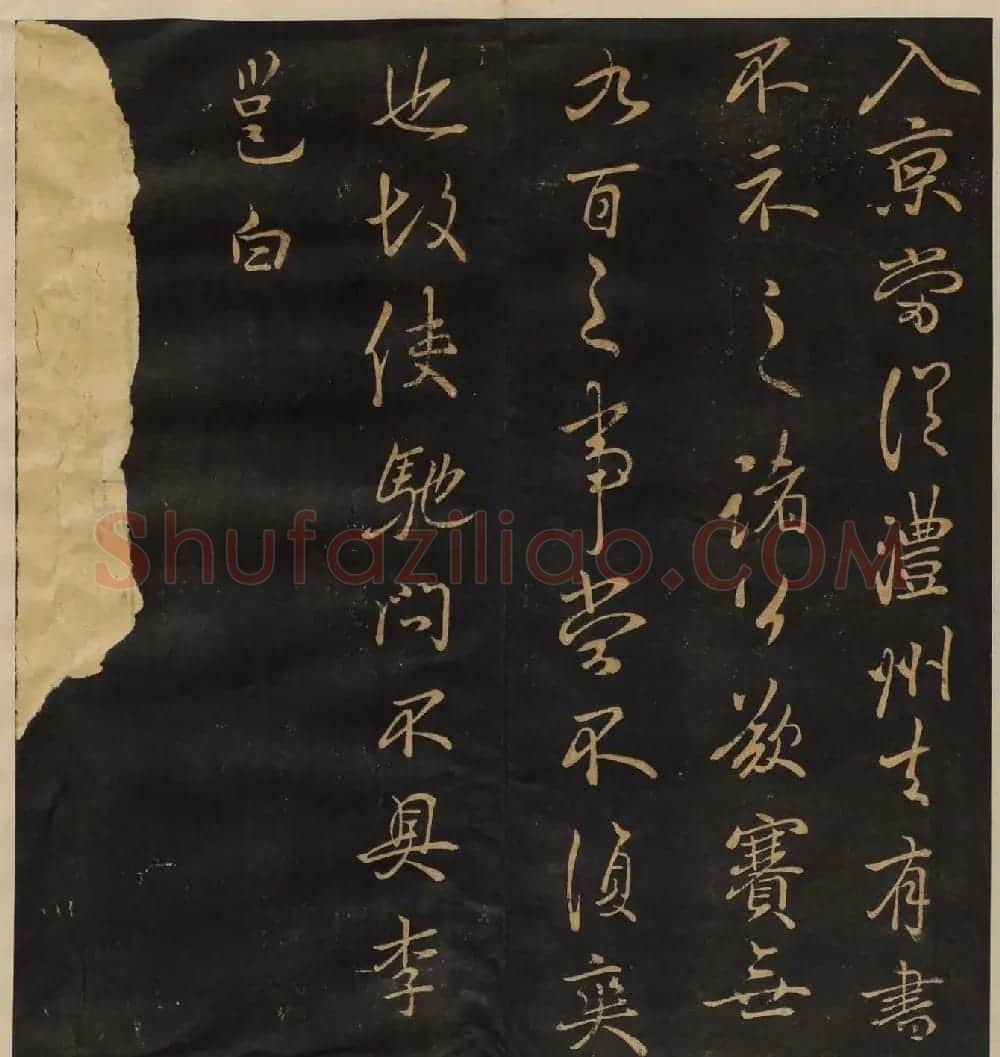 入京當從澧州去有書
不示之諸公欲賽無
九百之事當不復爽
也故使馳問不具李
邕白
Shufaziliao.COM